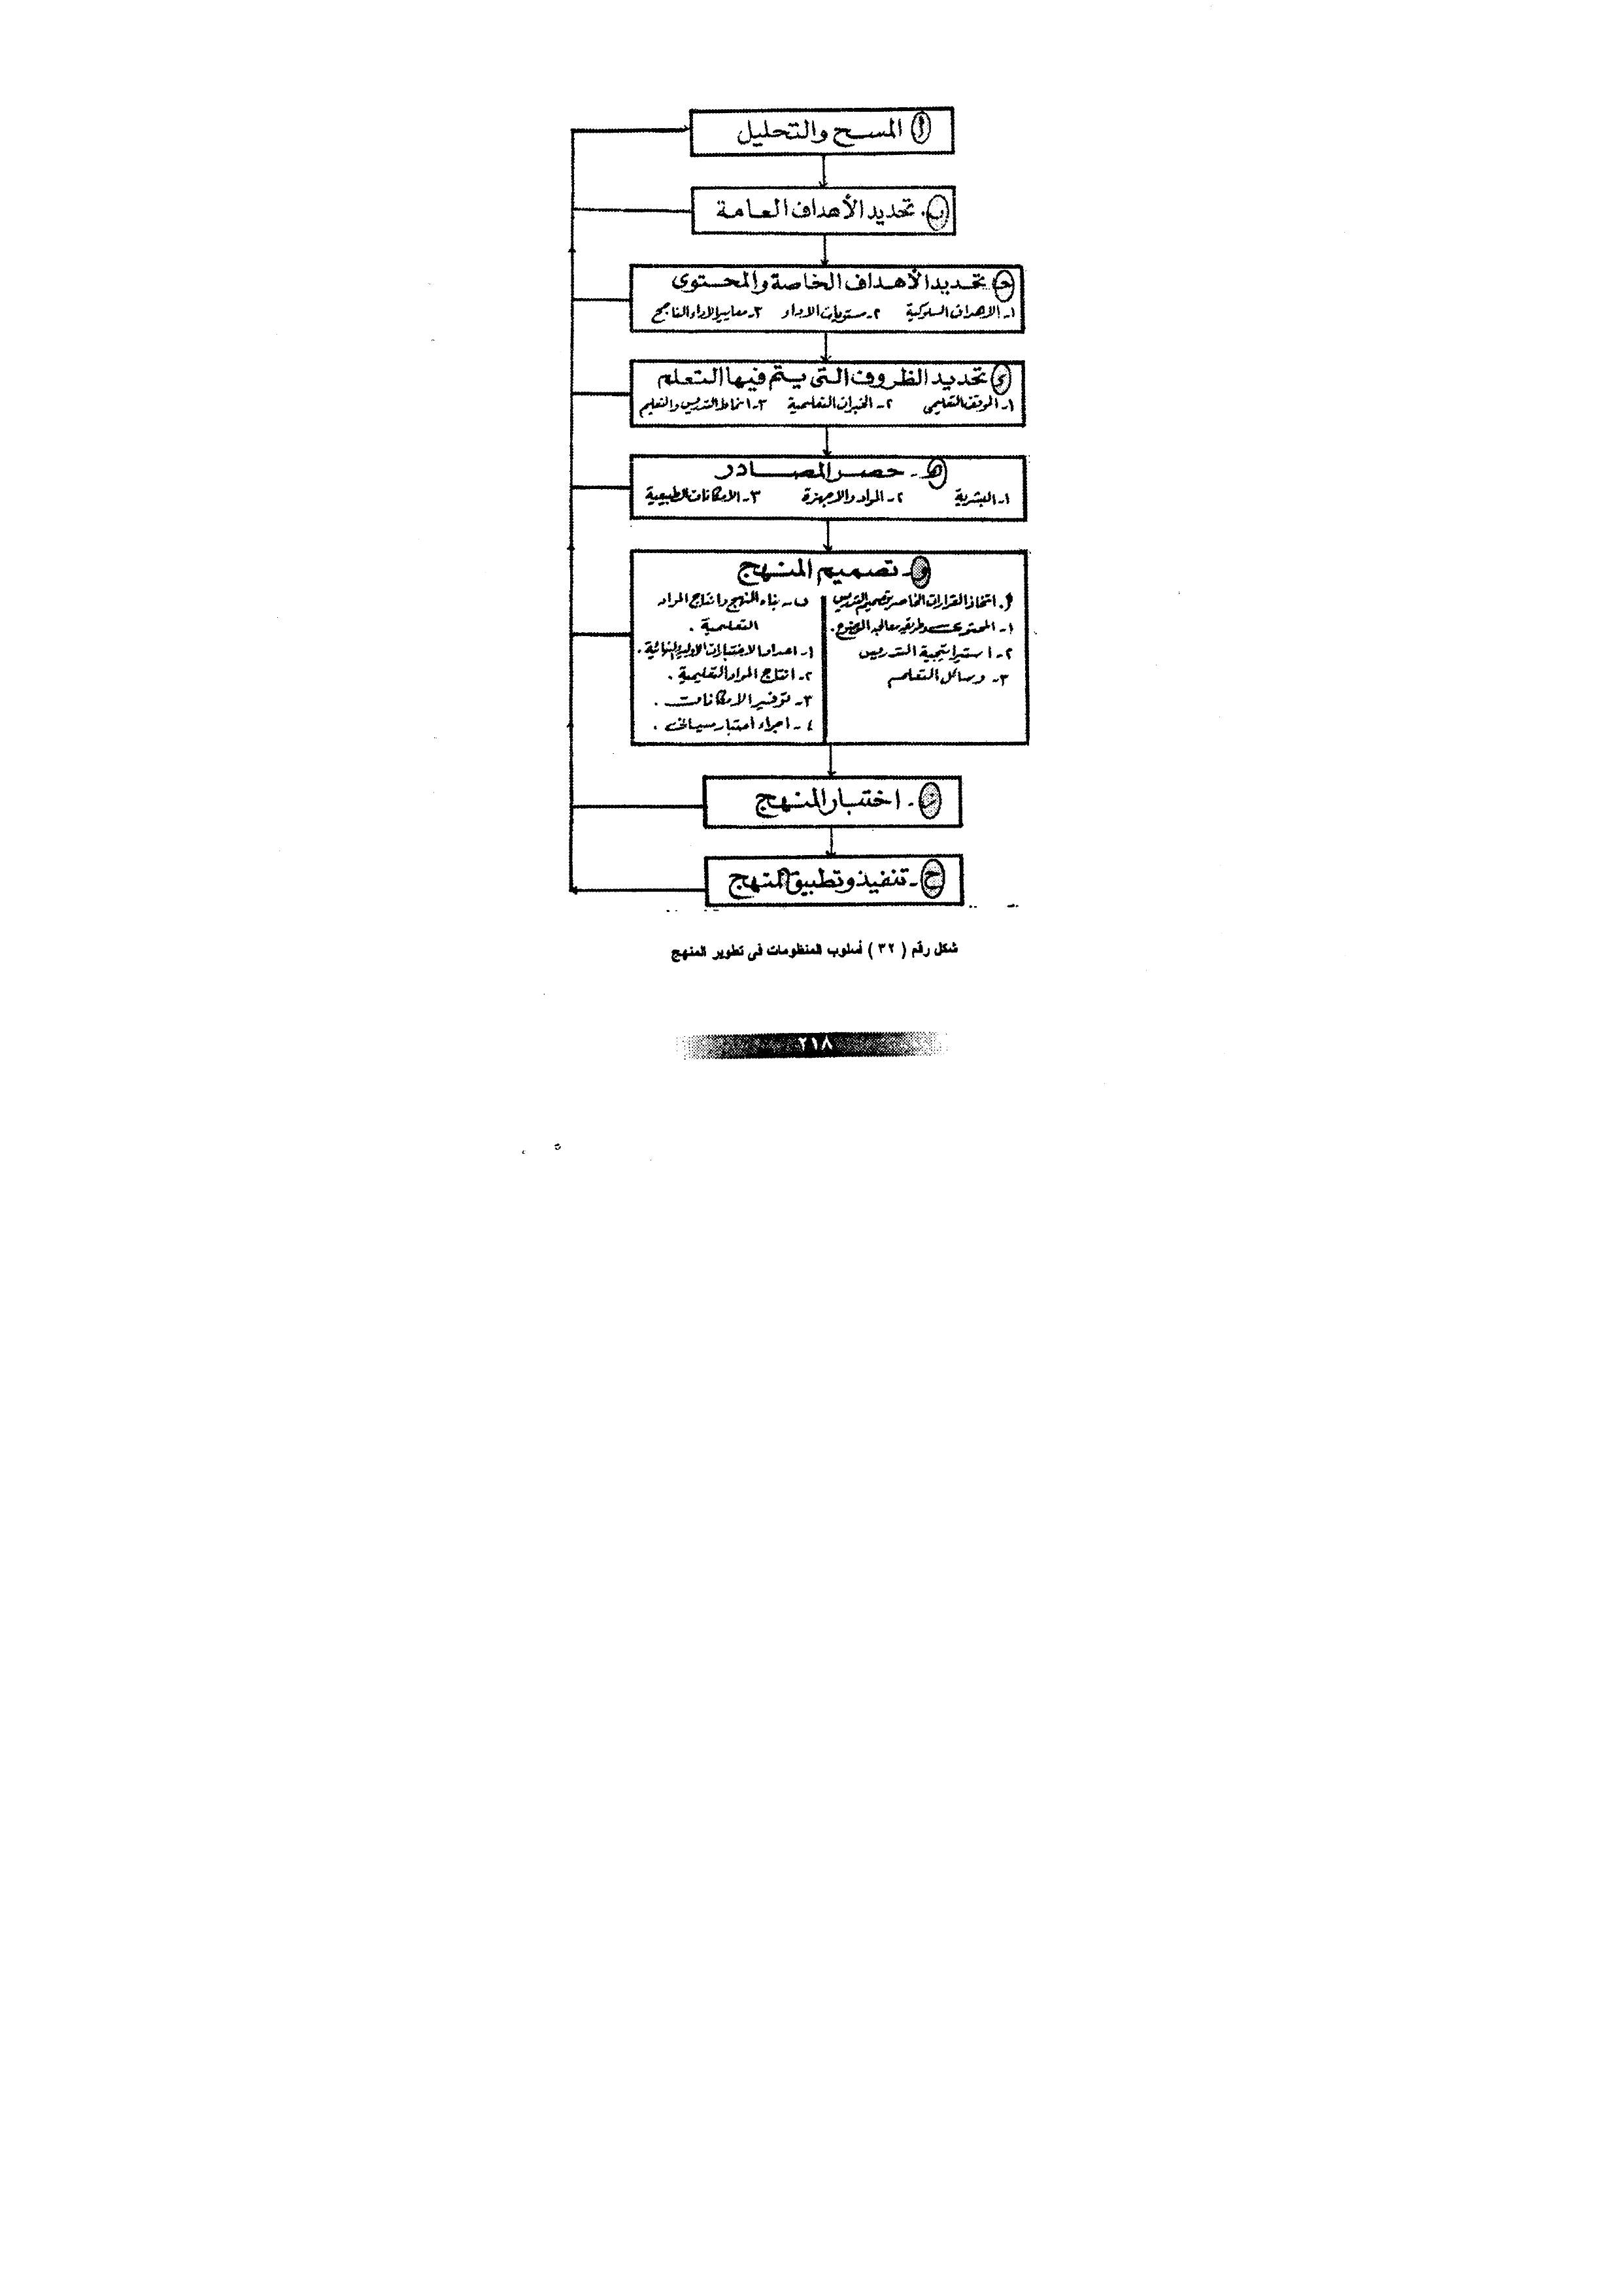 أ المسح والتحليل
ب. تحديد الأهداف العامة
جـ تحديد الأهداف الخاصة والمحتوى
١- الاهداف السلوكية ٢- مستويات الاداء ٣- معايير الاداء الناجح
د تحديد الظروف التى يتم فيها التعلم
١- الموقف التعليمى ٢- الخبرات التعليمية ٣- انماط التدريس والتعليم
هـ - حصر المصادر
١- البشرية ٢- المواد والاجهزة ٣- الامكانات الطبيعية
و- تصميم المنهج
أ. اتخاذ القرارات الخاصة بتصميم التدريس
١- المحتوى وطريقة معالجة الموضوع.
٢- استراتيجية التدريس
٣- وسائل التعلم
ب- بناء المنهج وانتاج المواد
التعليمية.
١- اعداد الاختبارات الاولية والنهائية.
٢- انتاج المواد التعليمية.
٣- توفير الامكانات.
٤- اجراء اختبار ميدانى.
ز- اختبار المنهج
ح- تنفيذ وتطبيق المنهج
شكل رقم ( ٣٢ ) أسلوب المنظومات فى تطوير المنهج
٢١٨